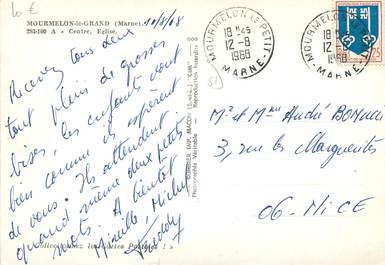 10 €
MOURMELON-le-GRAND (Marne)
283-100 A - Centre, Eglise.
10/8/68
Recevez tous deux
tout plein de grosses
bises, les enfants vont
bien comme ils espèrent
de vous. Ils attendent
quand même deux petits
mots. A bientôt
Mireille, Michel
Freddy
« Collectionnez les Cartes Postales ! »
COMBIER IMP. MACON "CIM"
Photographie Véritable - Reproduction interdite
MOURMELON LE PETIT
18 H 45
12-8
1968
MARNE
MOURMELON LE PETIT
18 H
12-8
1968
MARNE
Mr et Mme André
3, rue les Marguerites
06-NICE